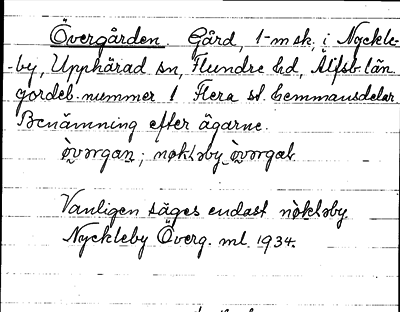 Övergården. Gård, 1 msk, i Nyckle-
-by, Upphärad sn, Flundre hd, Älfsb. län
jordeb. nummer 1 Flera st. hemmansdelar
Benämning efter ägarne.
òvərgaṇ; nøkləby òvərgaḷ
Vanligen säges endast nøkləby
Nyckleby Överg. ml. 1934.